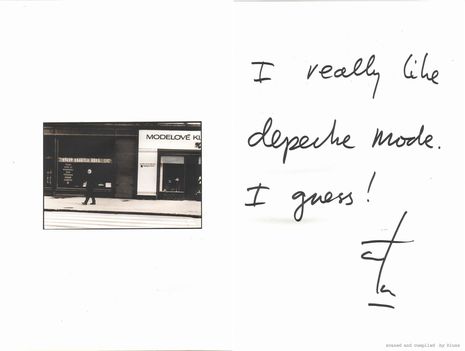 MODELOVÉ KL
I really like
depeche mode.
I guess!
scaned and compiled by Kluss